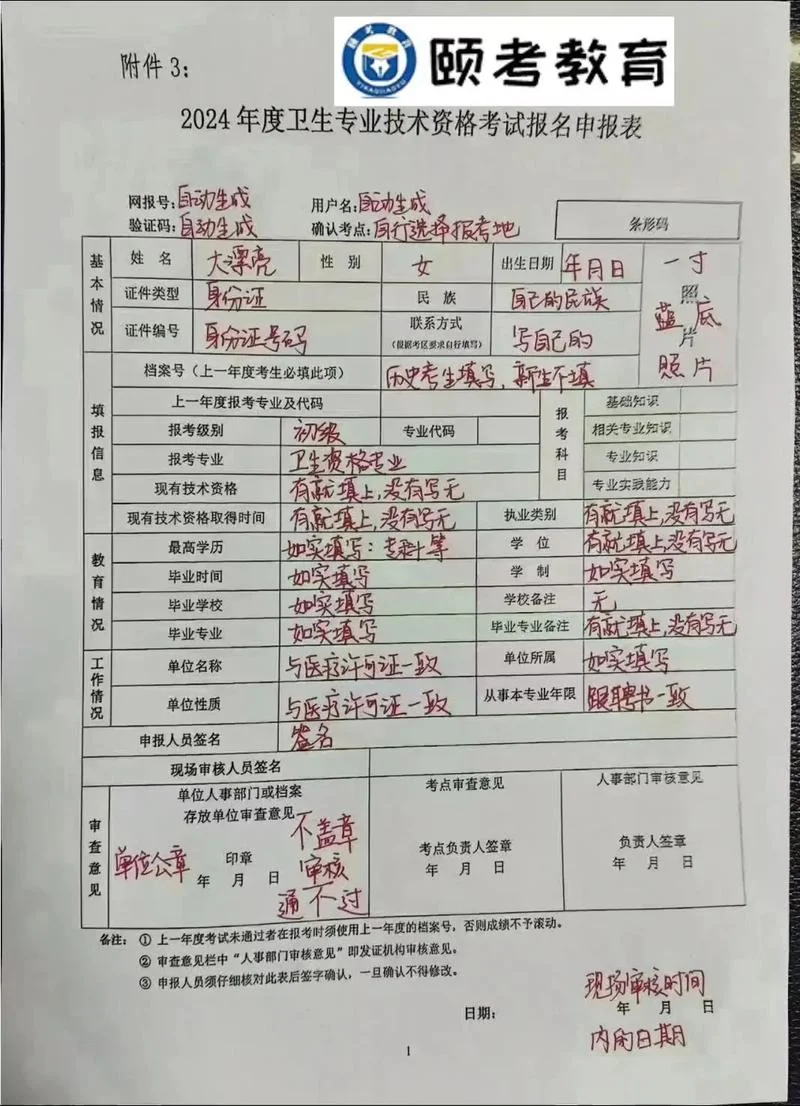 颐考教育
YIKAOJIAOYU
附件3：
2024年度卫生专业技术资格考试报名申报表
网报号：自动生成 用户名：自动生成
验证码：自动生成 确认考点：自行选择报考地 条形码
基本情况 姓名 大漂亮 性别 女 出生日期 年月日 一寸照蓝底片照片
证件类型 身份证 民族 自己的民族
证件编号 身份证号码 联系方式（根据考区要求自行填写） 写自己的
填报信息 档案号（上一年度考生必填此项） 历史考生填写，新生不填
上一年度报考专业及代码 报考科目 基础知识
报考级别 初级 专业代码 相关专业知识
报考专业 卫生资格专业 专业知识
现有技术资格 有就填上，没有写无 专业实践能力
现有技术资格取得时间 有就填上，没有写无 执业类别 有就填上，没有写无
教育情况 最高学历 如实填写：专科等 学位 有就填上，没有写无
毕业时间 如实填写 学制 如实填写
毕业学校 如实填写 学校备注 无
毕业专业 如实填写 毕业专业备注 有就填上，没有写无
工作情况 单位名称 与医疗许可证一致 单位所属 如实填写
单位性质 与医疗许可证一致 从事本专业年限 跟聘书一致
申报人员签名 签名
现场审核人员签名
审查意见 单位人事部门或档案 考点审查意见 人事部门审核意见
存放单位审查意见
不盖章
单位公章 印章 审核 考点负责人签章 负责人签章
年 月 日 年 月 日 年 月 日
通不过
备注：① 上一年度考试未通过者在报考时须使用上一年度的档案号，否则成绩不予滚动。
② 审查意见栏中“人事部门审核意见”即发证机构审核意见。
③ 申报人员须仔细核对此表后签字确认，一旦确认不得修改。
现场审核时间
日期： 年 月 日
内的日期
1